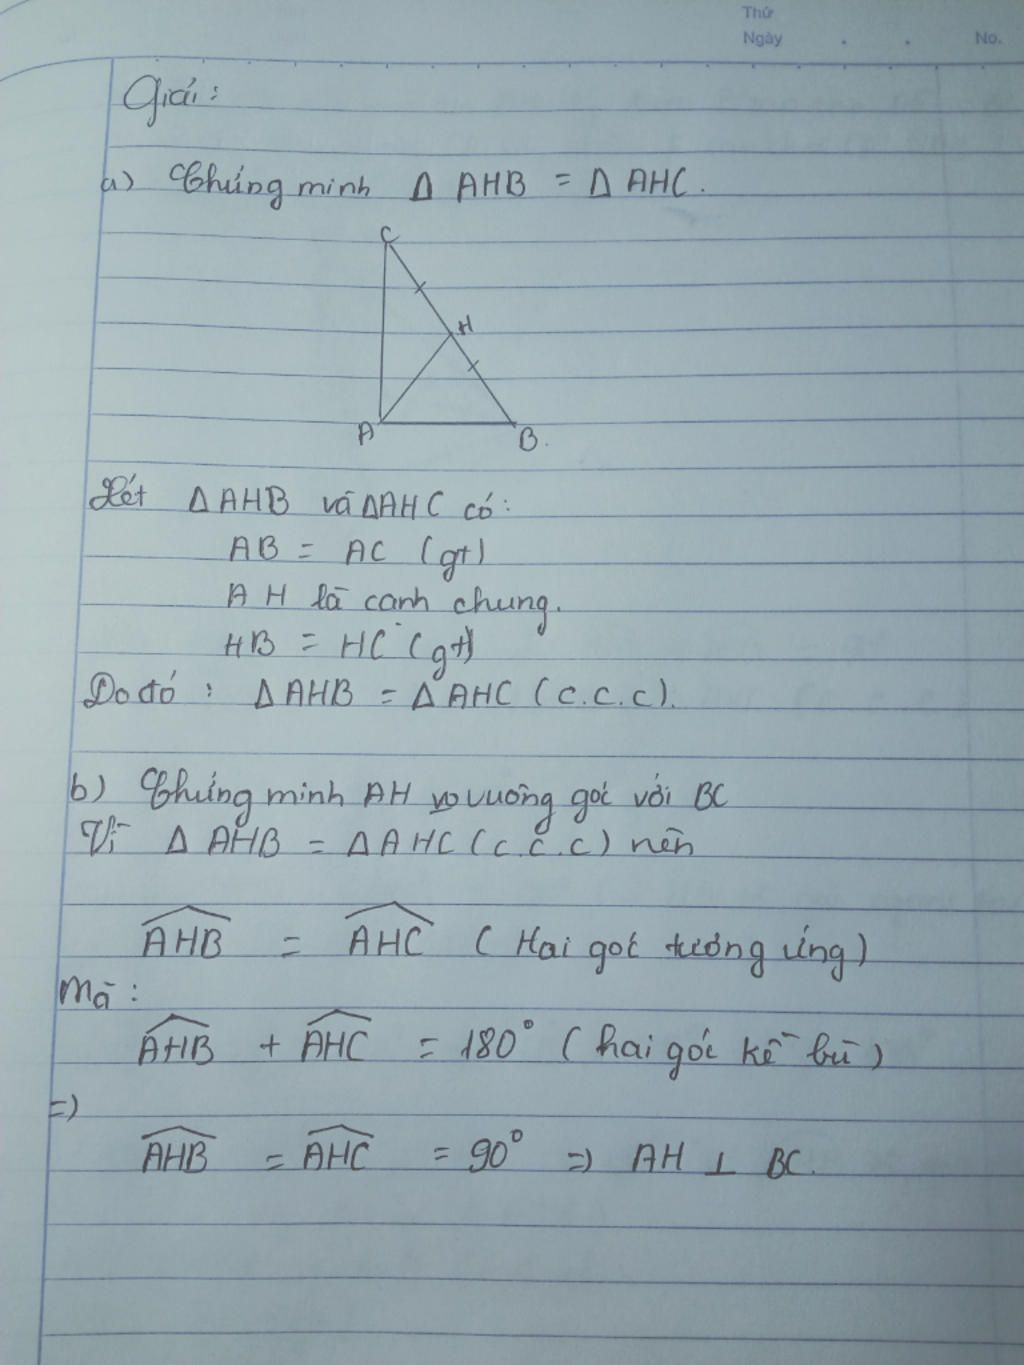 Thứ
Ngày . . No.
Giải:
a) Chứng minh Δ AHB = Δ AHC.
C
H
A
B.
Xét Δ AHB và Δ AHC có:
AB = AC (gt)
AH là cạnh chung.
HB = HC (gt)
Do đó : Δ AHB = Δ AHC (c.c.c).
b) Chứng minh AH vo vuông góc với BC
Vì Δ AHB = Δ AHC (c.c.c) nên
\widehat{AHB} = \widehat{AHC} (Hai góc tương ứng)
Mà :
\widehat{AHB} + \widehat{AHC} = 180° (hai góc kề bù)
=>
\widehat{AHB} = \widehat{AHC} = 90° => AH ⊥ BC.